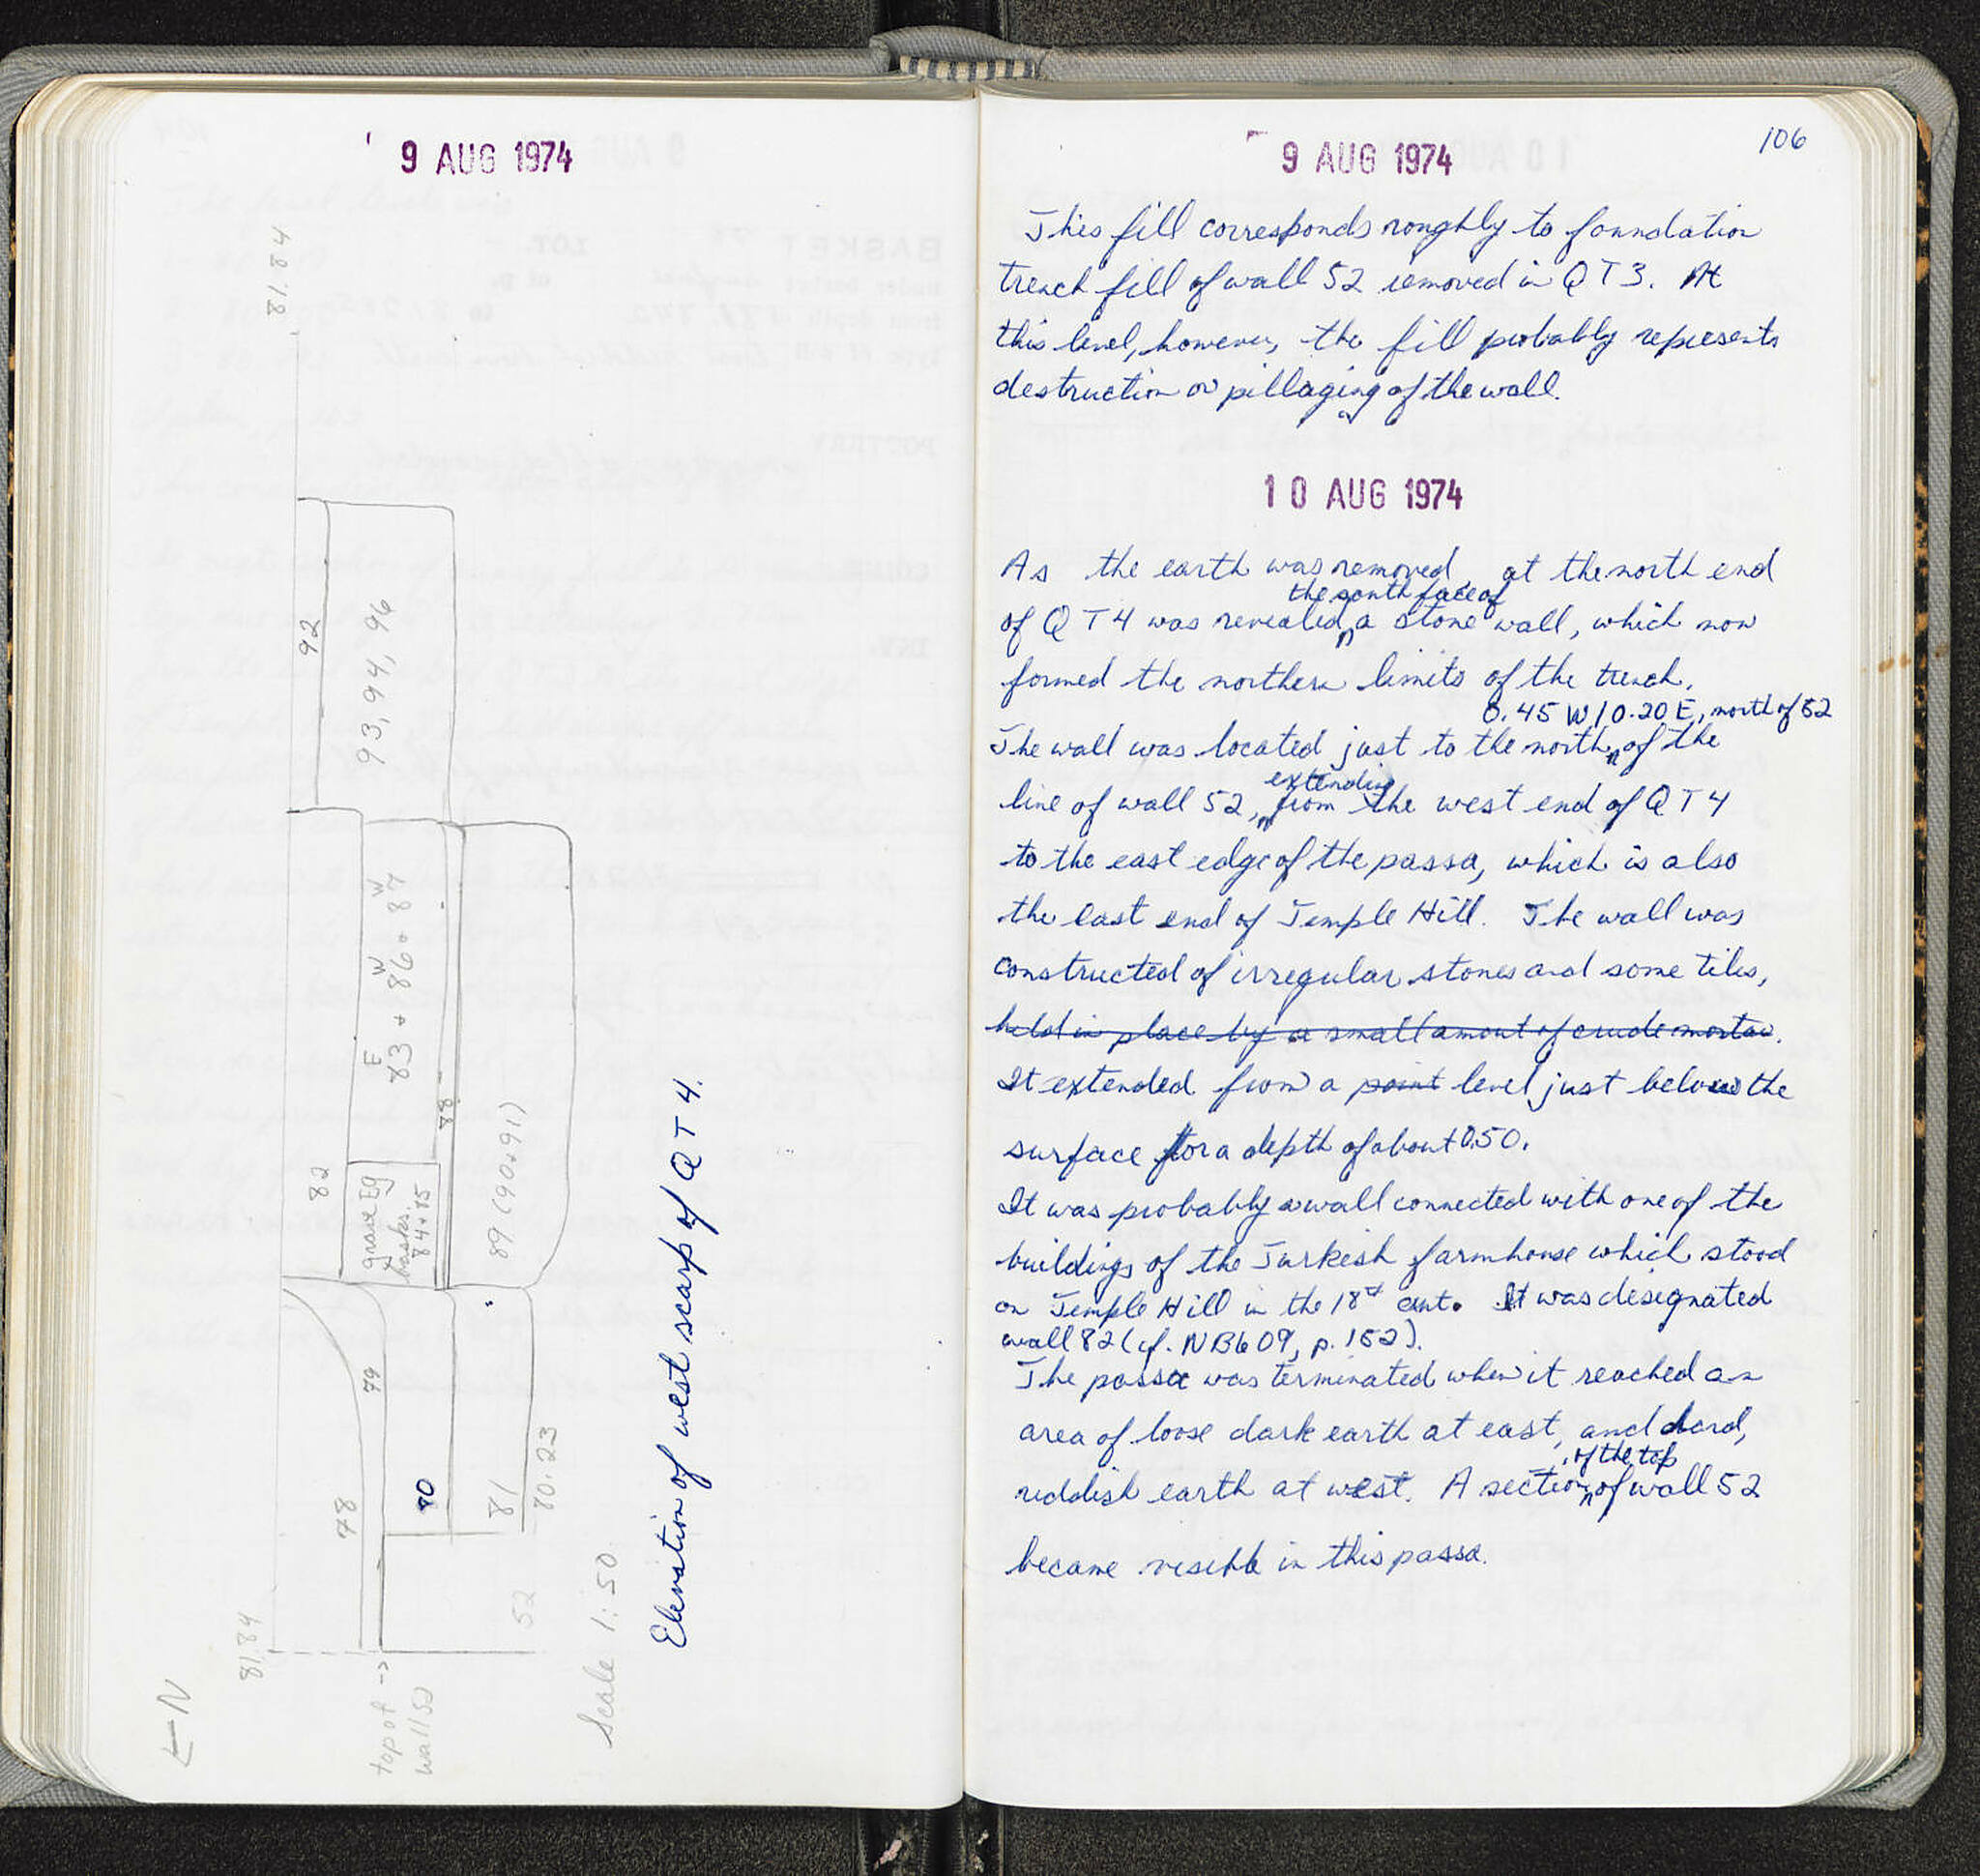 9 AUG 1974
81.84
92
93, 94, 96
E W W
83 + 86 + 87
88
82
grave Eg
basks.
84+85
89 (90+91)
79
78
80
81
80.23
52
81.84
top of →
wall 52
←N
Scale 1:50
Elevation of west scarp of QT4.
9 AUG 1974
106
This fill corresponds roughly to foundation
trench fill of wall 52 removed in QT3. At
this level, however, the fill probably represents
destruction or pillaging of the wall.
10 AUG 1974
As the earth was removed, at the north end
the south face of
of QT4 was revealed a stone wall, which now
formed the northern limits of the trench.
0.45 W/0.20 E, north of 52
The wall was located just to the north of the
extending
line of wall 52, from the west end of QT4
to the east edge of the passa, which is also
the east end of Temple Hill. The wall was
constructed of irregular stones and some tiles,
held in place by a small amount of crude mortar.
It extended from a point level just below the
surface for a depth of about 0.50.
It was probably a wall connected with one of the
buildings of the Turkish farmhouse which stood
on Temple Hill in the 18th cent. It was designated
wall 82 (cf. NB609, p. 152).
The passa was terminated when it reached an
area of loose dark earth at east, and hard,
of the top
reddish earth at west. A section of wall 52
became visible in this passa.